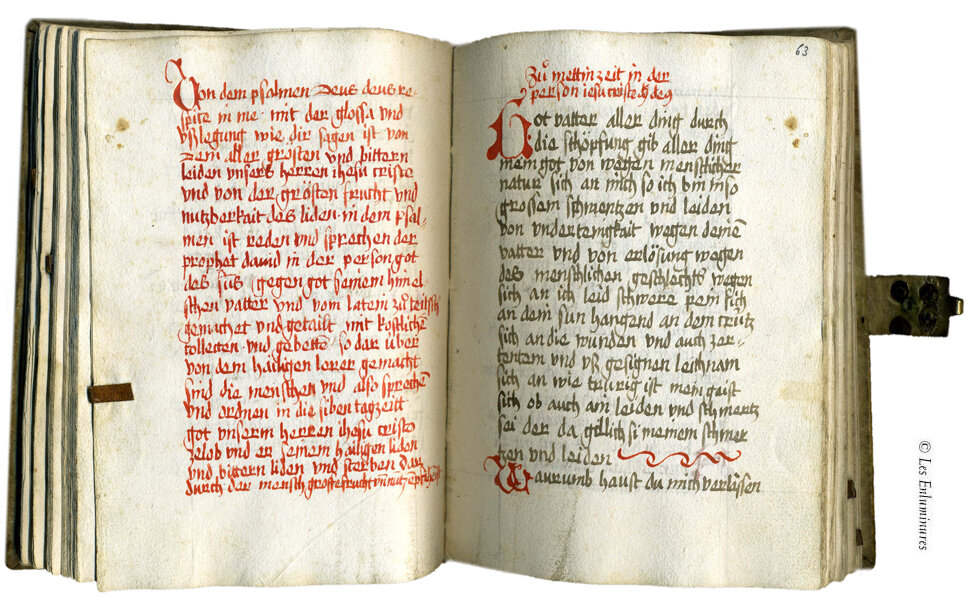 Von dem psalmen Deus deus re-
spice in me mit der glossa und
vsslegung wie dir sagen ist von
dem aller grösten vnd bittern
leiden vnsers herren ihesu cristo
vnd von der grösten frucht vnd
nutzberkait des liden in dem psal-
men ist reden vnd sprechen der
prophet dauid in der person got
des suns gegen got seinem himel-
schen vatter vnd vom latein zů teütsch
gemachet vnd getailt mit kostlichen
collecten vnd gebette so dar über
von dem häiligen lerer gemacht
sind die menschen vnd also sprechen
vnd ordnen in die siben tagzeitt
got vnserm herren ihesu cristo
zelob vnd er seinem häiligen liden
vnd bittern liden vnd sterben dar
durch der mensch groste frucht
63
Zů mettin zeit in der
person iesu cristi
Got vatter aller ding durch
die schöpfung gib aller ding
mein got von wegen menschlicher
natur sich an mich so ich bin in so
grossem schmertzen vnd leiden
von vndertenigkait wegen deine
vatter vnd von erlösung wegen
des menschlichen geschlechts wegen
sich an ich leid schwere pein sich
an dem sun hangend an dem crütz
sich an die wunden vnd auch zer-
tentem vnd vß gesignen leichnam
sich an wie trurig ist mein gaist
sich ob auch ain leiden vnd schmertz
sei der da gilich si meinem schmer
tzen vnd leiden
Waurumb haust du mich verlässen
© Les Enluminures